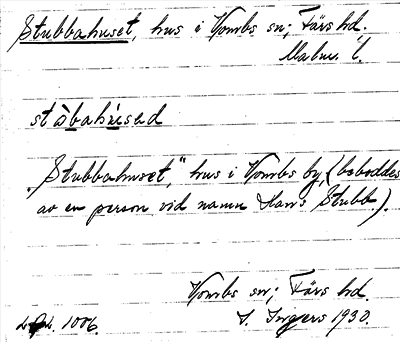 Stubbahuset, hus i Vombs sn; Färs hd.
Malm. l.
stàbahùsed
"Stubbahuset," hus i Vombs by, (beboddes
av en person vid namn Hans Stubb).
Vombs sn; Färs hd.
1006. I. Ingers 1930.